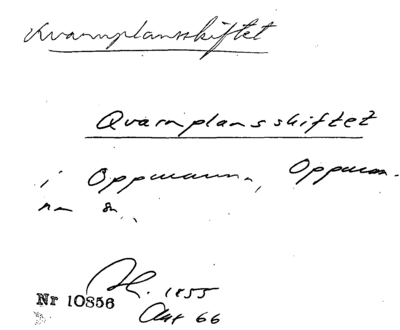 Kvarnplansskiftet
Qvarnplansskiftet
i Oppmanna, Oppman-
na sn.
Nr 10856
1855
Akt 66